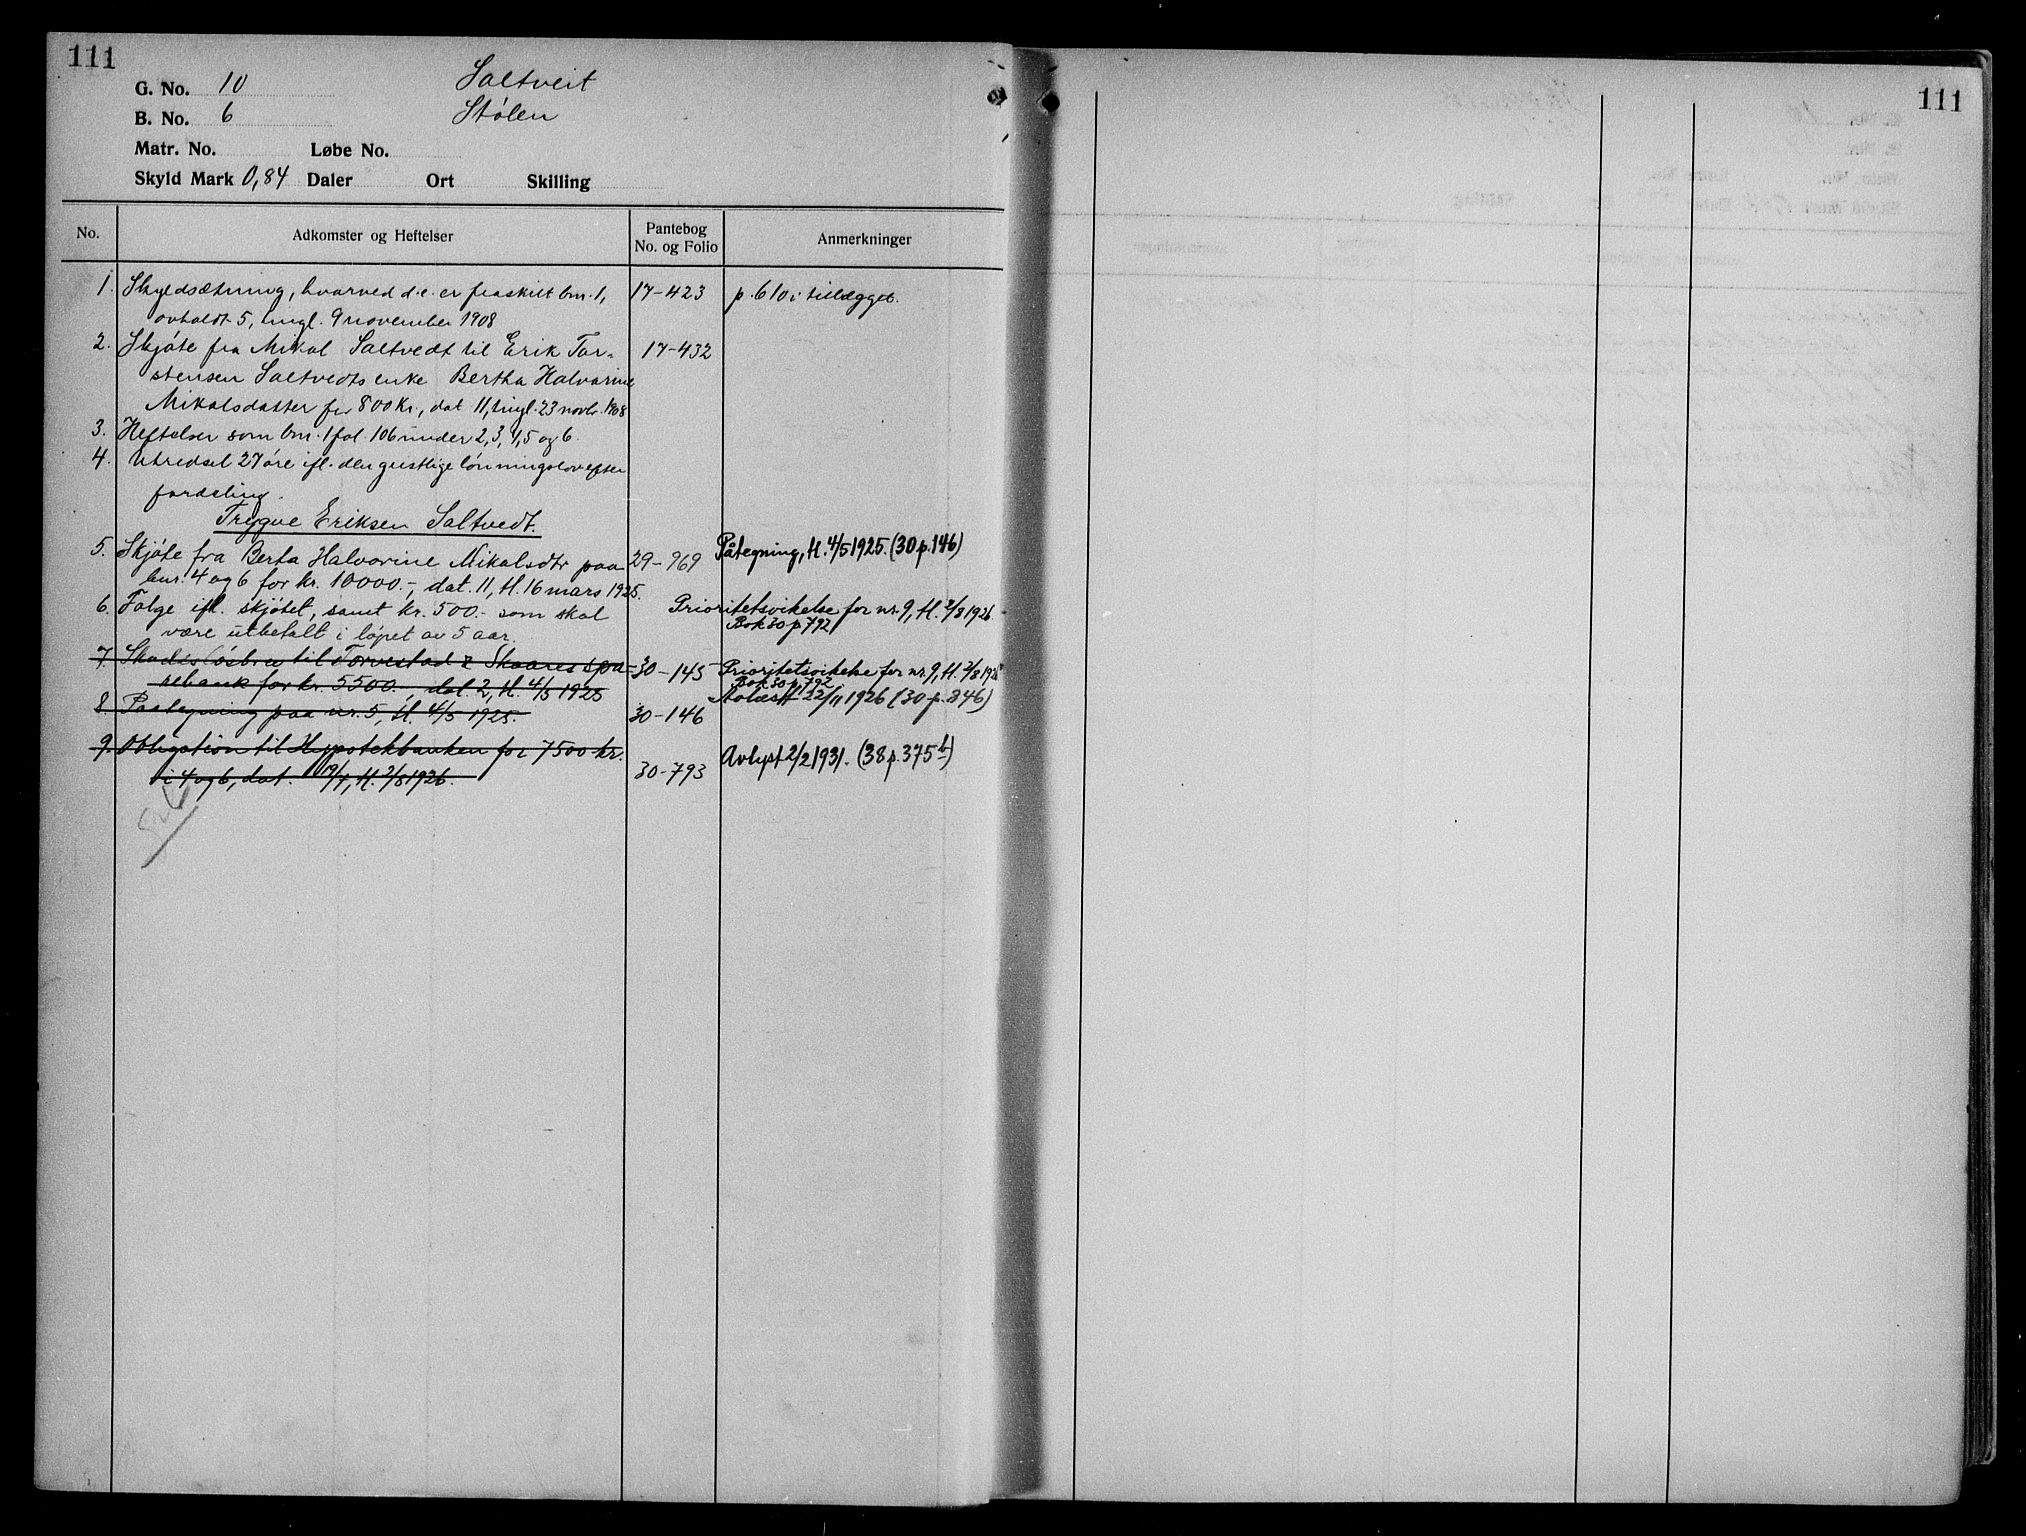 111
G. No. 10 Saltveit
B. No. 6 Stølen
Matr. No. Løbe No.
Skyld Mark 0,84 Daler Ort Skilling
No. Adkomster og Heftelser Pantebog No. og Folio Anmerkninger
1. Skyldsætning, hvorved d.e. er fraskilt bnr. 1, 17-423 p. 610 i tillægget.
avholdt 5, tingl. 9 november 1908
2. Skjøte fra Mikal Saltvedt til Erik Tor- 17-432
stensen Saltvedts enke Bertha Halvorine
Mikalsdatter for 800 kr., dat 11, tingl. 23 novbr. 1908
3. Heftelser som bnr. 1 fol. 106 under 2, 3, 4, 5 og 6.
4. Utredsel 27 øre ifl. den geistlige lønningslov efter
fordeling.
Trygve Eriksen Saltvedt.
5. Skjøte fra Berta Halvorine Mikalsdtr paa 29-969 Påtegning, tl. 4/5 1925. (30 p. 146)
bnr. 4 og 6 for kr. 10000.-, dat. 11, tl. 16 mars 1925.
6. Følge ifl. skjøtet, samt kr. 500.- som skal Prioritetsvikelse for nr. 9, tl. 2/8 1926
være utbetalt i løpet av 5 aar. Bok 30 p 792
7. Skadesløsbrev til Torvestad & Skaares spa- 30-145 Prioritetsvikelse for nr. 9, tl. 2/8 1926
rebank for kr. 5500.-, dat 2, tl. 4/5 1925 Bok 30 p. 792
Avlæst 22/11 1926 (30 p. 846)
8. Paategning paa nr. 5, tl. 4/5 1925. 30-146
9. Obligation til Hypotekbanken for 7500 kr. Avlyst 2/2 1931. (38 p. 375 b)
i 4 og 6, dat. 19/7, tl. 2/8 1926. 30-793
111